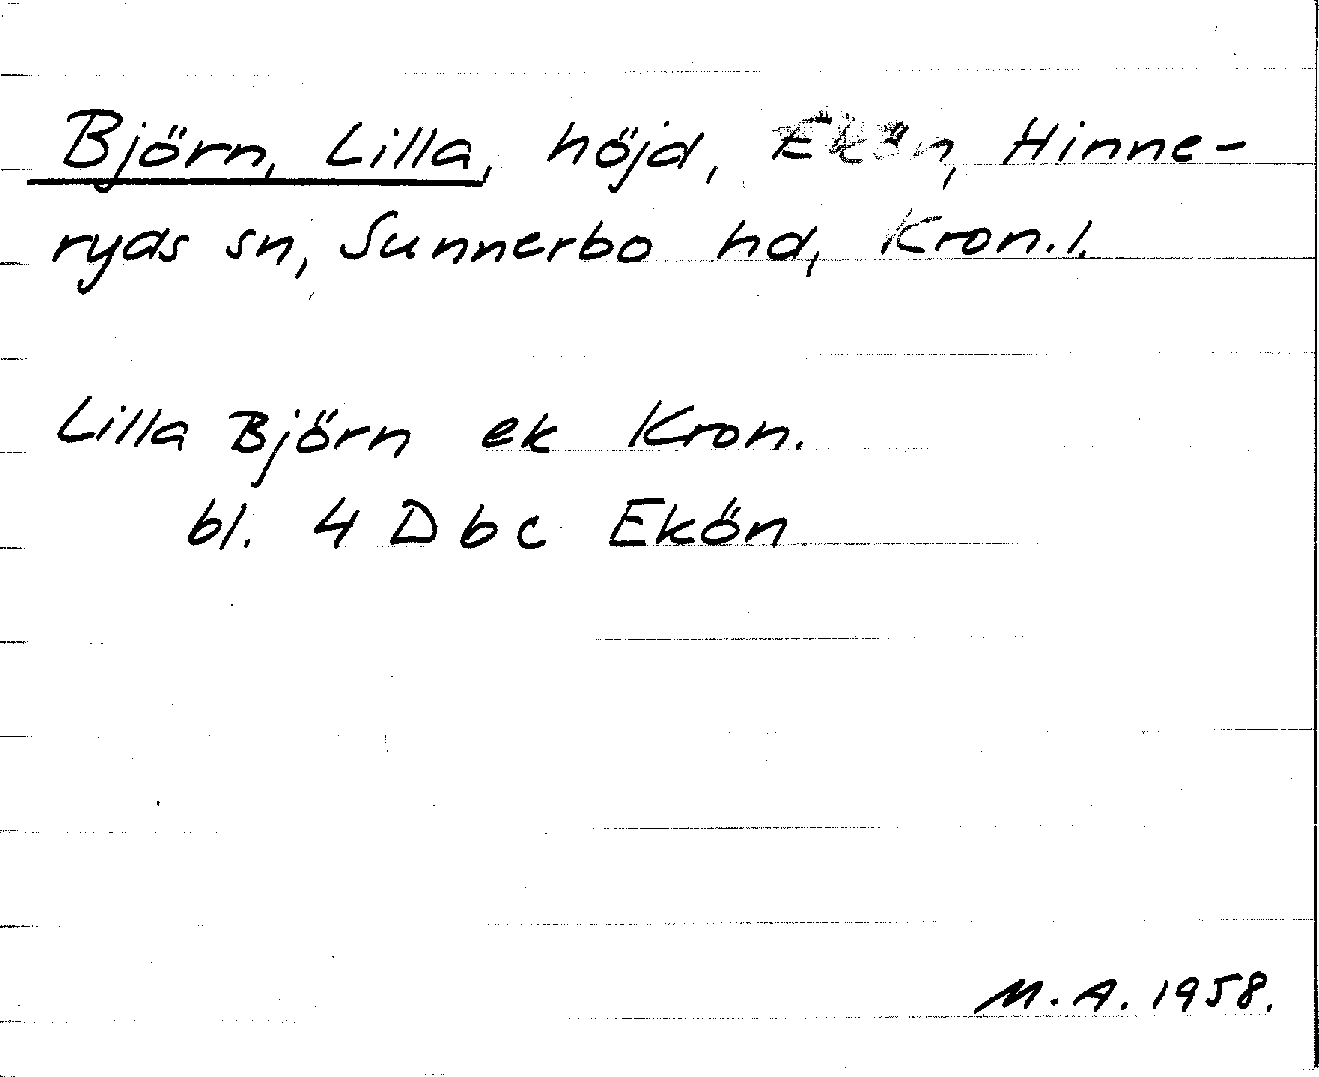 Björn, Lilla, höjd, Ekön, Hinne-
ryds sn, Sunnerbo hd, Kron.l.
Lilla Björn ek Kron.
bl. 4 D b c Ekön
M.A. 1958.